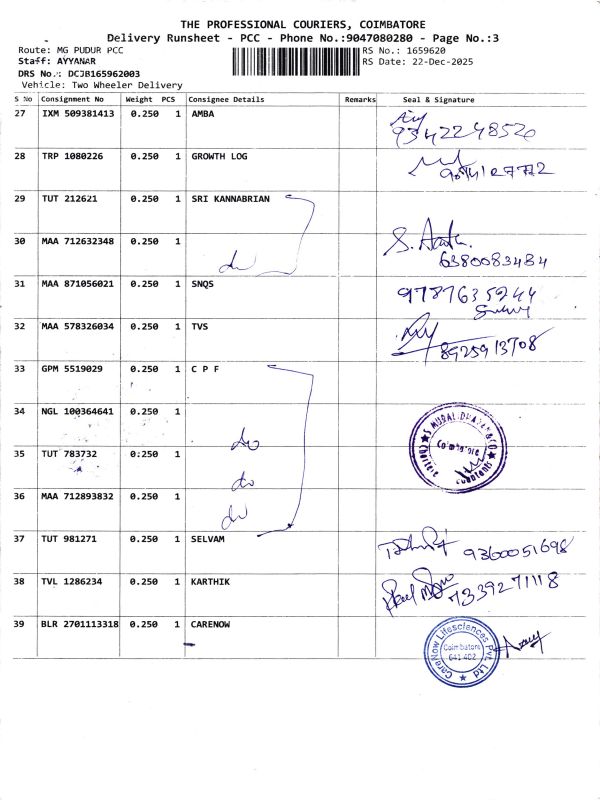 THE PROFESSIONAL COURIERS, COIMBATORE
Delivery Runsheet - PCC - Phone No.:9047080280 - Page No.:3
Route: MG PUDUR PCC RS No.: 1659620
Staff: AYYANAR RS Date: 22-Dec-2025
DRS No.: DCJB165962003
Vehicle: Two Wheeler Delivery
S No Consignment No Weight PCS Consignee Details Remarks Seal & Signature
27 IXM 509381413 0.250 1 AMBA
9342248520
28 TRP 1080226 0.250 1 GROWTH LOG
29 TUT 212621 0.250 1 SRI KANNABRIAN
30 MAA 712632348 0.250 1
do
6380083484
31 MAA 871056021 0.250 1 SNQS
9787635244
32 MAA 578326034 0.250 1 TVS
8925913708
33 GPM 5519029 0.250 1 C P F
34 NGL 100364641 0.250 1
do
S. MURALIDHARAN & CO
Coimbatore
35 TUT 783732 0.250 1
do
36 MAA 712893832 0.250 1
do
37 TUT 981271 0.250 1 SELVAM
9360051698
38 TVL 1286234 0.250 1 KARTHIK
7339271118
39 BLR 2701113318 0.250 1 CARENOW
CareNow Lifesciences Pvt. Ltd
Coimbatore
641 402